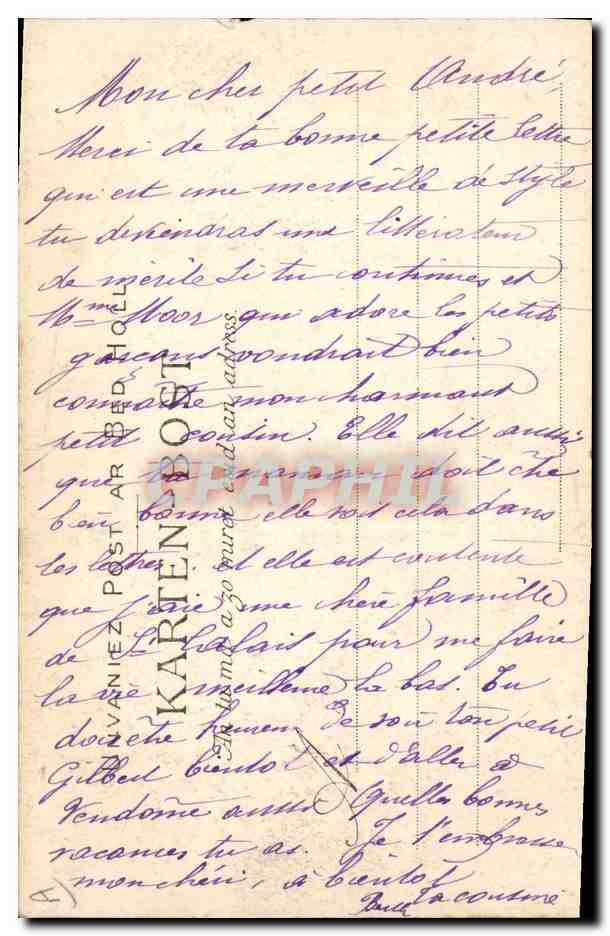 Mon cher petit André,
Merci de ta bonne petite lettre
qui est une merveille de style
tu deviendras un littérateur
de mérite si tu continues et
Mme Moor qui adore les petits
garçons voudrait bien
connaître mon charmant
petit cousin. Elle dit aussi
que ta maman doit être
bien bonne elle voit cela dans
les lettres. et elle est contente
que j'aie une chère famille
de St Calais pour me faire
la vie meilleure là bas. Tu
dois être heureux de voir ton petit
Gilbert bientôt et d'aller à
Vendôme aussi Quelles bonnes
vacances tu as. Je t'embrasse
mon chéri, à bientôt
ta cousine
UNVANIEZ POST AR BED HOLL
KARTEN-BOST
An tu-man a zo miret evid an adress.
CPAPHIL